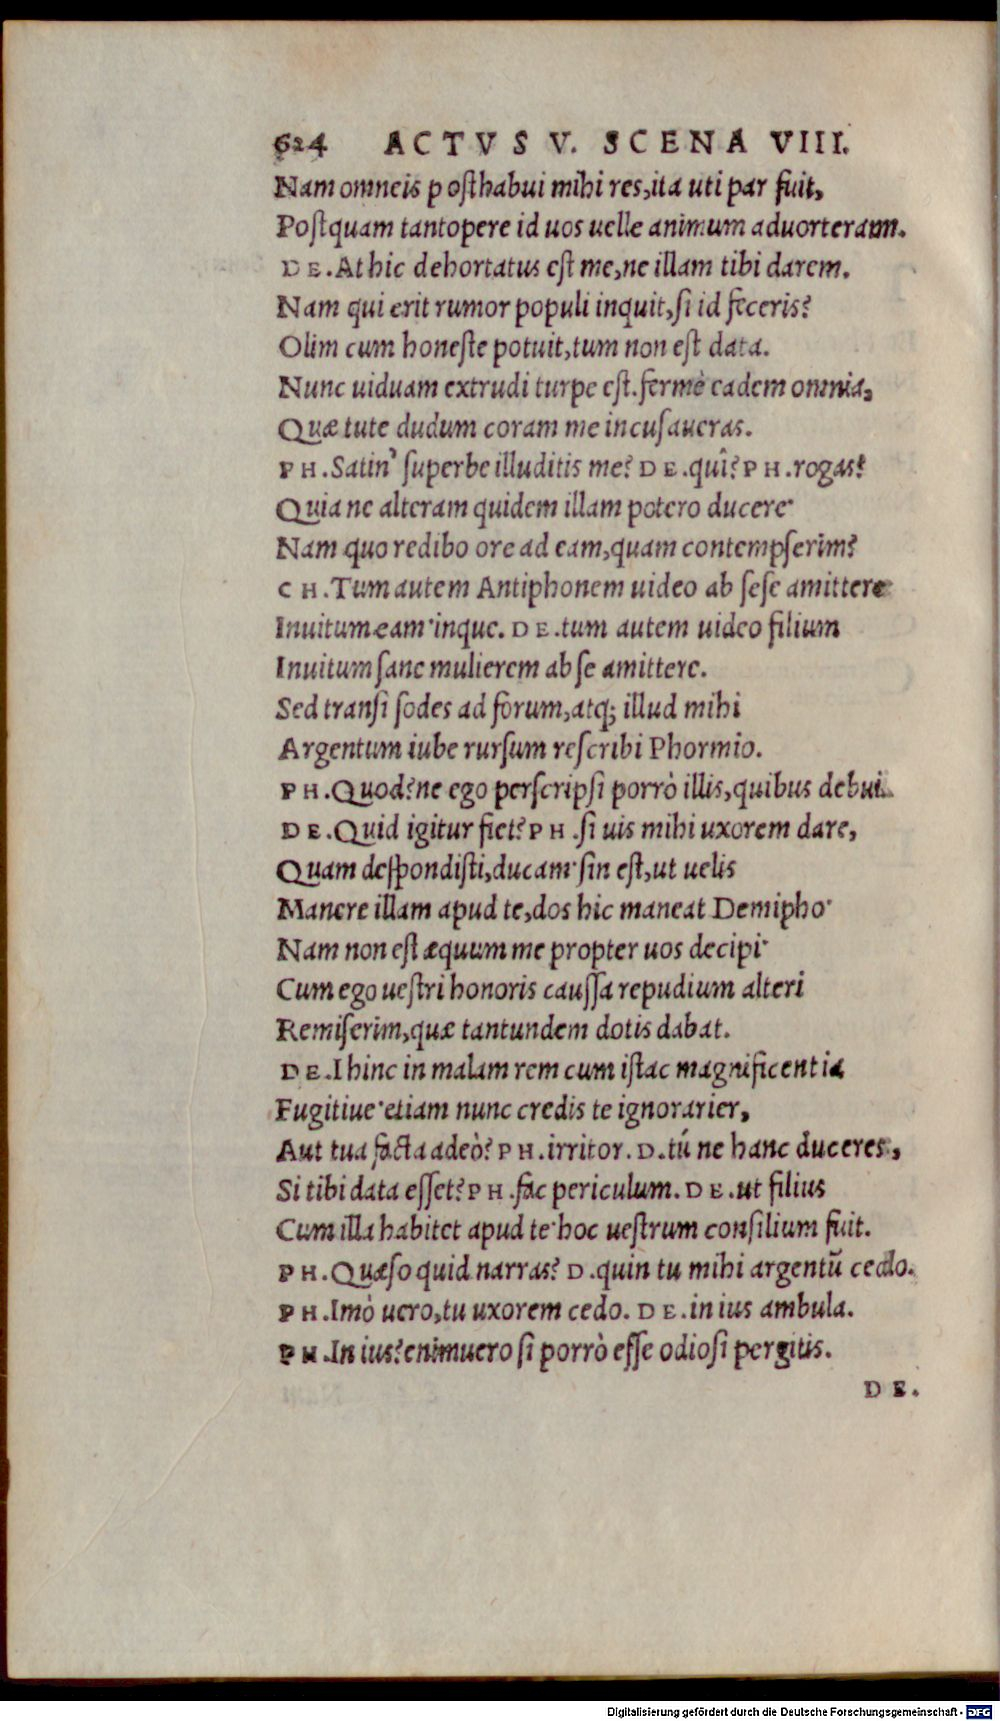 624 ACTVS V. SCENA VIII.
Nam omneis posthabui mihi res, ita uti par fuit,
Postquam tantopere id uos uelle animum aduorteram.
DE. At hic dehortatus est me, ne illam tibi darem.
Nam qui erit rumor populi inquit, si id feceris?
Olim cum honeste potuit, tum non est data.
Nunc uiduam extrudi turpe est. fermè eadem omnia,
Quæ tute dudum coram me incusaueras.
PH. Satin' superbe illuditis me? DE. quî? PH. rogas?
Quia ne alteram quidem illam potero ducere·
Nam quo redibo ore ad eam, quam contempserim?
CH. Tum autem Antiphonem uideo ab sese amittere
Inuitum eam·inque. DE. tum autem uideo filium
Inuitum sane mulierem ab se amittere.
Sed transi sodes ad forum, atq; illud mihi
Argentum iube rursum rescribi Phormio.
PH. Quod? ne ego perscripsi porrò illis, quibus debui.
DE. Quid igitur fiet? PH. si uis mihi uxorem dare,
Quam despondisti, ducam·sin est, ut uelis
Manere illam apud te, dos hic maneat Demipho·
Nam non est æquum me propter uos decipi·
Cum ego uestri honoris caussa repudium alteri
Remiserim, quæ tantundem dotis dabat.
DE. I hinc in malam rem cum istac magnificentia
Fugitiue·etiam nunc credis te ignorarier,
Aut tua facta adeò? PH. irritor. D. tú ne hanc duceres,
Si tibi data esset? PH. fac periculum. DE. ut filius
Cum illa habitet apud te·hoc uestrum consilium fuit.
PH. Quæso quid narras? D. quin tu mihi argentū cedo.
PH. Imò uero, tu uxorem cedo. DE. in ius ambula.
PH. In ius? enimuero si porrò esse odiosi pergitis.
DE.
Digitalisierung gefördert durch die Deutsche Forschungsgemeinschaft - DFG